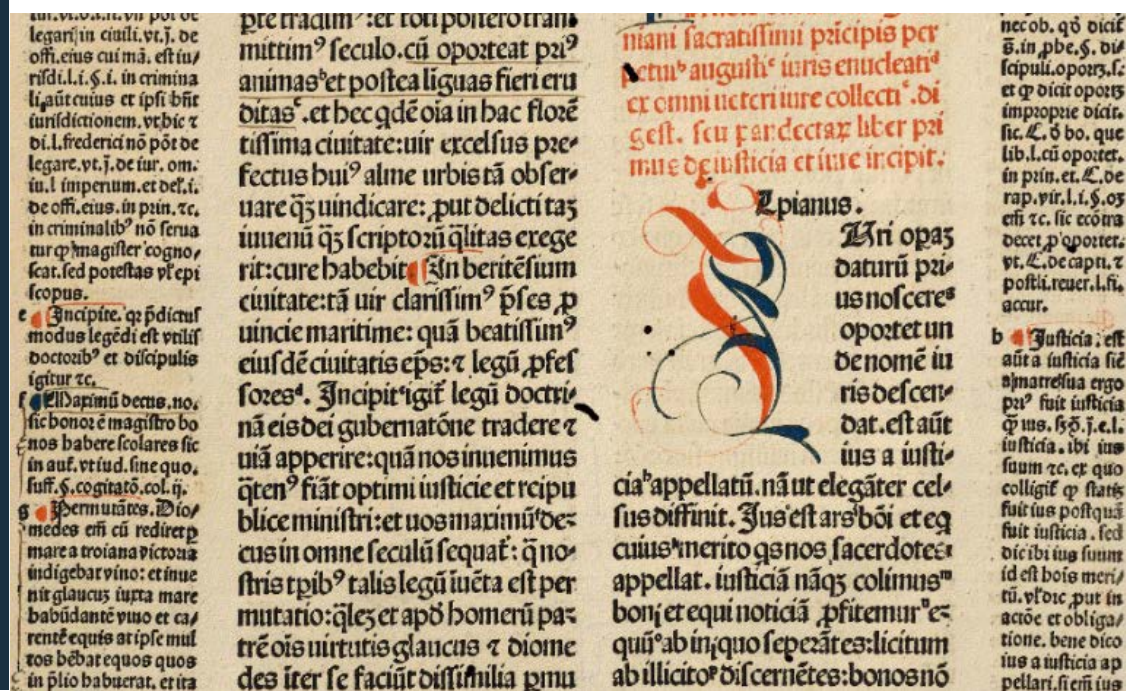 legari in ciuili.vt.j. de
offi.eius cui mā. est iu/
risdi.l.i.§.i. in crimina
li.aūt cuius et ipsi hn̄t
iurisdictionem.vt hic ⁊
di.l.frederici nō pōt de
legare.vt.j.de iur. om.
iu.l imperium.et def.i.
de offi.eius.in prin.⁊c.
in criminalibꝰ nō serua
tur ꝙ magister cogno/
scat.sed potestas vl' epi
scopus.
e Incipite. qꝛ p̄dictus
modus legēdi est vtilis
doctoribꝰ et discipulis
igitur ⁊c.
f Maximū decus.no.
sic honor ē magistro bo
nos habere scolares sic
in aut̄.vt iud. sine quo.
suff.§.cogitatō.col.ij.
g Permutātes. Dio/
medes em̄ cū rediret ꝑ
mare a troiana victoria
indigebat vino: et inue
nit glaucuꝫ iuxta mare
habūdantē vino et ca/
rentē equis at ipse mul
tos hēbat equos quos
in p̄lio habuerat. et ita
pte tradimꝰ:et toti postero tran
mittimꝰ seculo.cū oporteat priꝰ
animasᵇ et postea liguas fieri eru
ditasᶜ.et hec qdē oīa in hac florē
tissima ciuitate:uir excelsus pre/
fectus huiꝰ alme urbis tā obser/
uare qꝫ uindicare: ꝓut delicti taꝫ
iuuenū qꝫ scriptoꝝ q̄litas exege
rit:cure habebit. In beritēsium
ciuitate:tā uir clarissimꝰ p̄ses ꝓ
uincie maritime: quā beatissimꝰ
eiusdē ciuitatis ep̄s:⁊ legū ꝓfes
soresᵈ. Incipitᵉ igit̄ legū doctri/
nā eis dei gubernatōne tradere ⁊
uiā apperire:quā nos inuenimus
q̄tenꝰ fiāt optimi iusticie et reipu
blice ministri:et uos maximūᶠ de/
cus in omne seculū sequat̄: q̄ no/
stris tp̄ibꝰ talis legū īuēta est per
mutatio:q̄leꝫ et apd̄ homerū pa/
trē oīs uirtutis glaucus ⁊ diome
des īter se faciūt dissimilia pmu
niani sacratissimi pricipis per
petuiᵇ augustiᶜ iuris enucleatiᵈ
ex omni ueteri iure collectiᵉ.di
gest. seu pandectaꝝ liber pri
mus de iusticia et iure incipit.
Vlpianus.
Vri opaꝫ
daturū pri/
us nosceреᵍ
oportet un
de nomē iu
ris descen/
dat.est aūt
ius a iusti/
ciaʰ appellatū.nā ut elegāter cel/
sus diffinit. Jus est ars bōi et eq
cuius merito qs nos sacerdotes
appellat. iusticiā nāqꝫ colimusᵐ
boni et equi noticiā ꝓfitemurⁿ e/
quūᵒ ab iniquo sepeₐrātes:licitum
ab illicitoᵖ discernētes:bonos nō
nec ob. qō dicit̄
§.in ꝓbe.§. di/
scipuli.oportꝫ.s.
et ꝙ dicit oportꝫ
improprie dicit.
sic.C.ꝺ bo. que
lib.l.cū oportet.
in prin.et.C.de
rap.vir.l.i.§.oꝫ
em̄ ⁊c. sic ecōtra
decet ꝓ oportet.
vt.C.de capti.⁊
postli.reuer.l.fi.
accur.
b Justicia. est
aūt a iusticia sic̄
a matre sua ergo
priꝰ fuit iusticia
iusticia. ibi ius
suum ⁊c. ex quo
colligit̄ ꝙ statꝫ
fuit ius postquā
fuit iusticia. sed
dic ibi ius suum
id est hoīs meri/
tū. vl' dic ꝓut in
actōe et obliga/
tione. bene dico
ius a iusticia ap
pellari.si em̄ ius